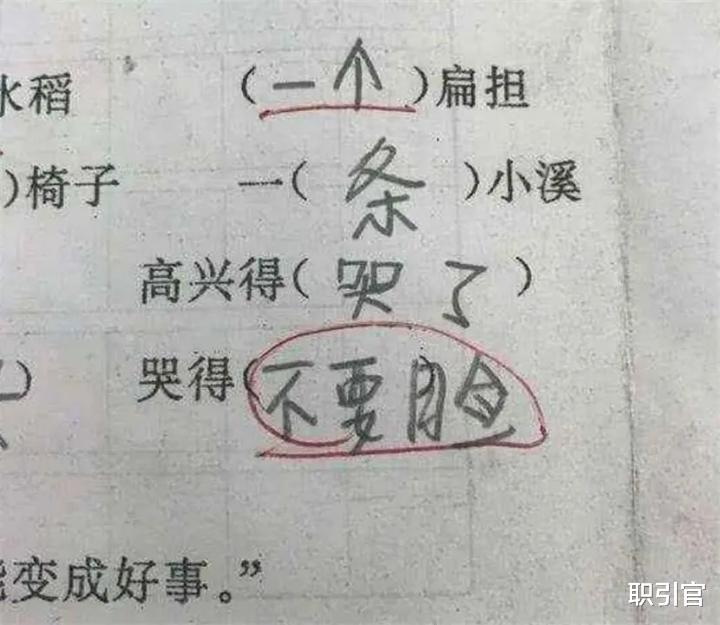 水稻 (一个)扁担
)椅子 一(条)小溪
高兴得(哭了)
) 哭得(不要脸
变成好事。”
职引官